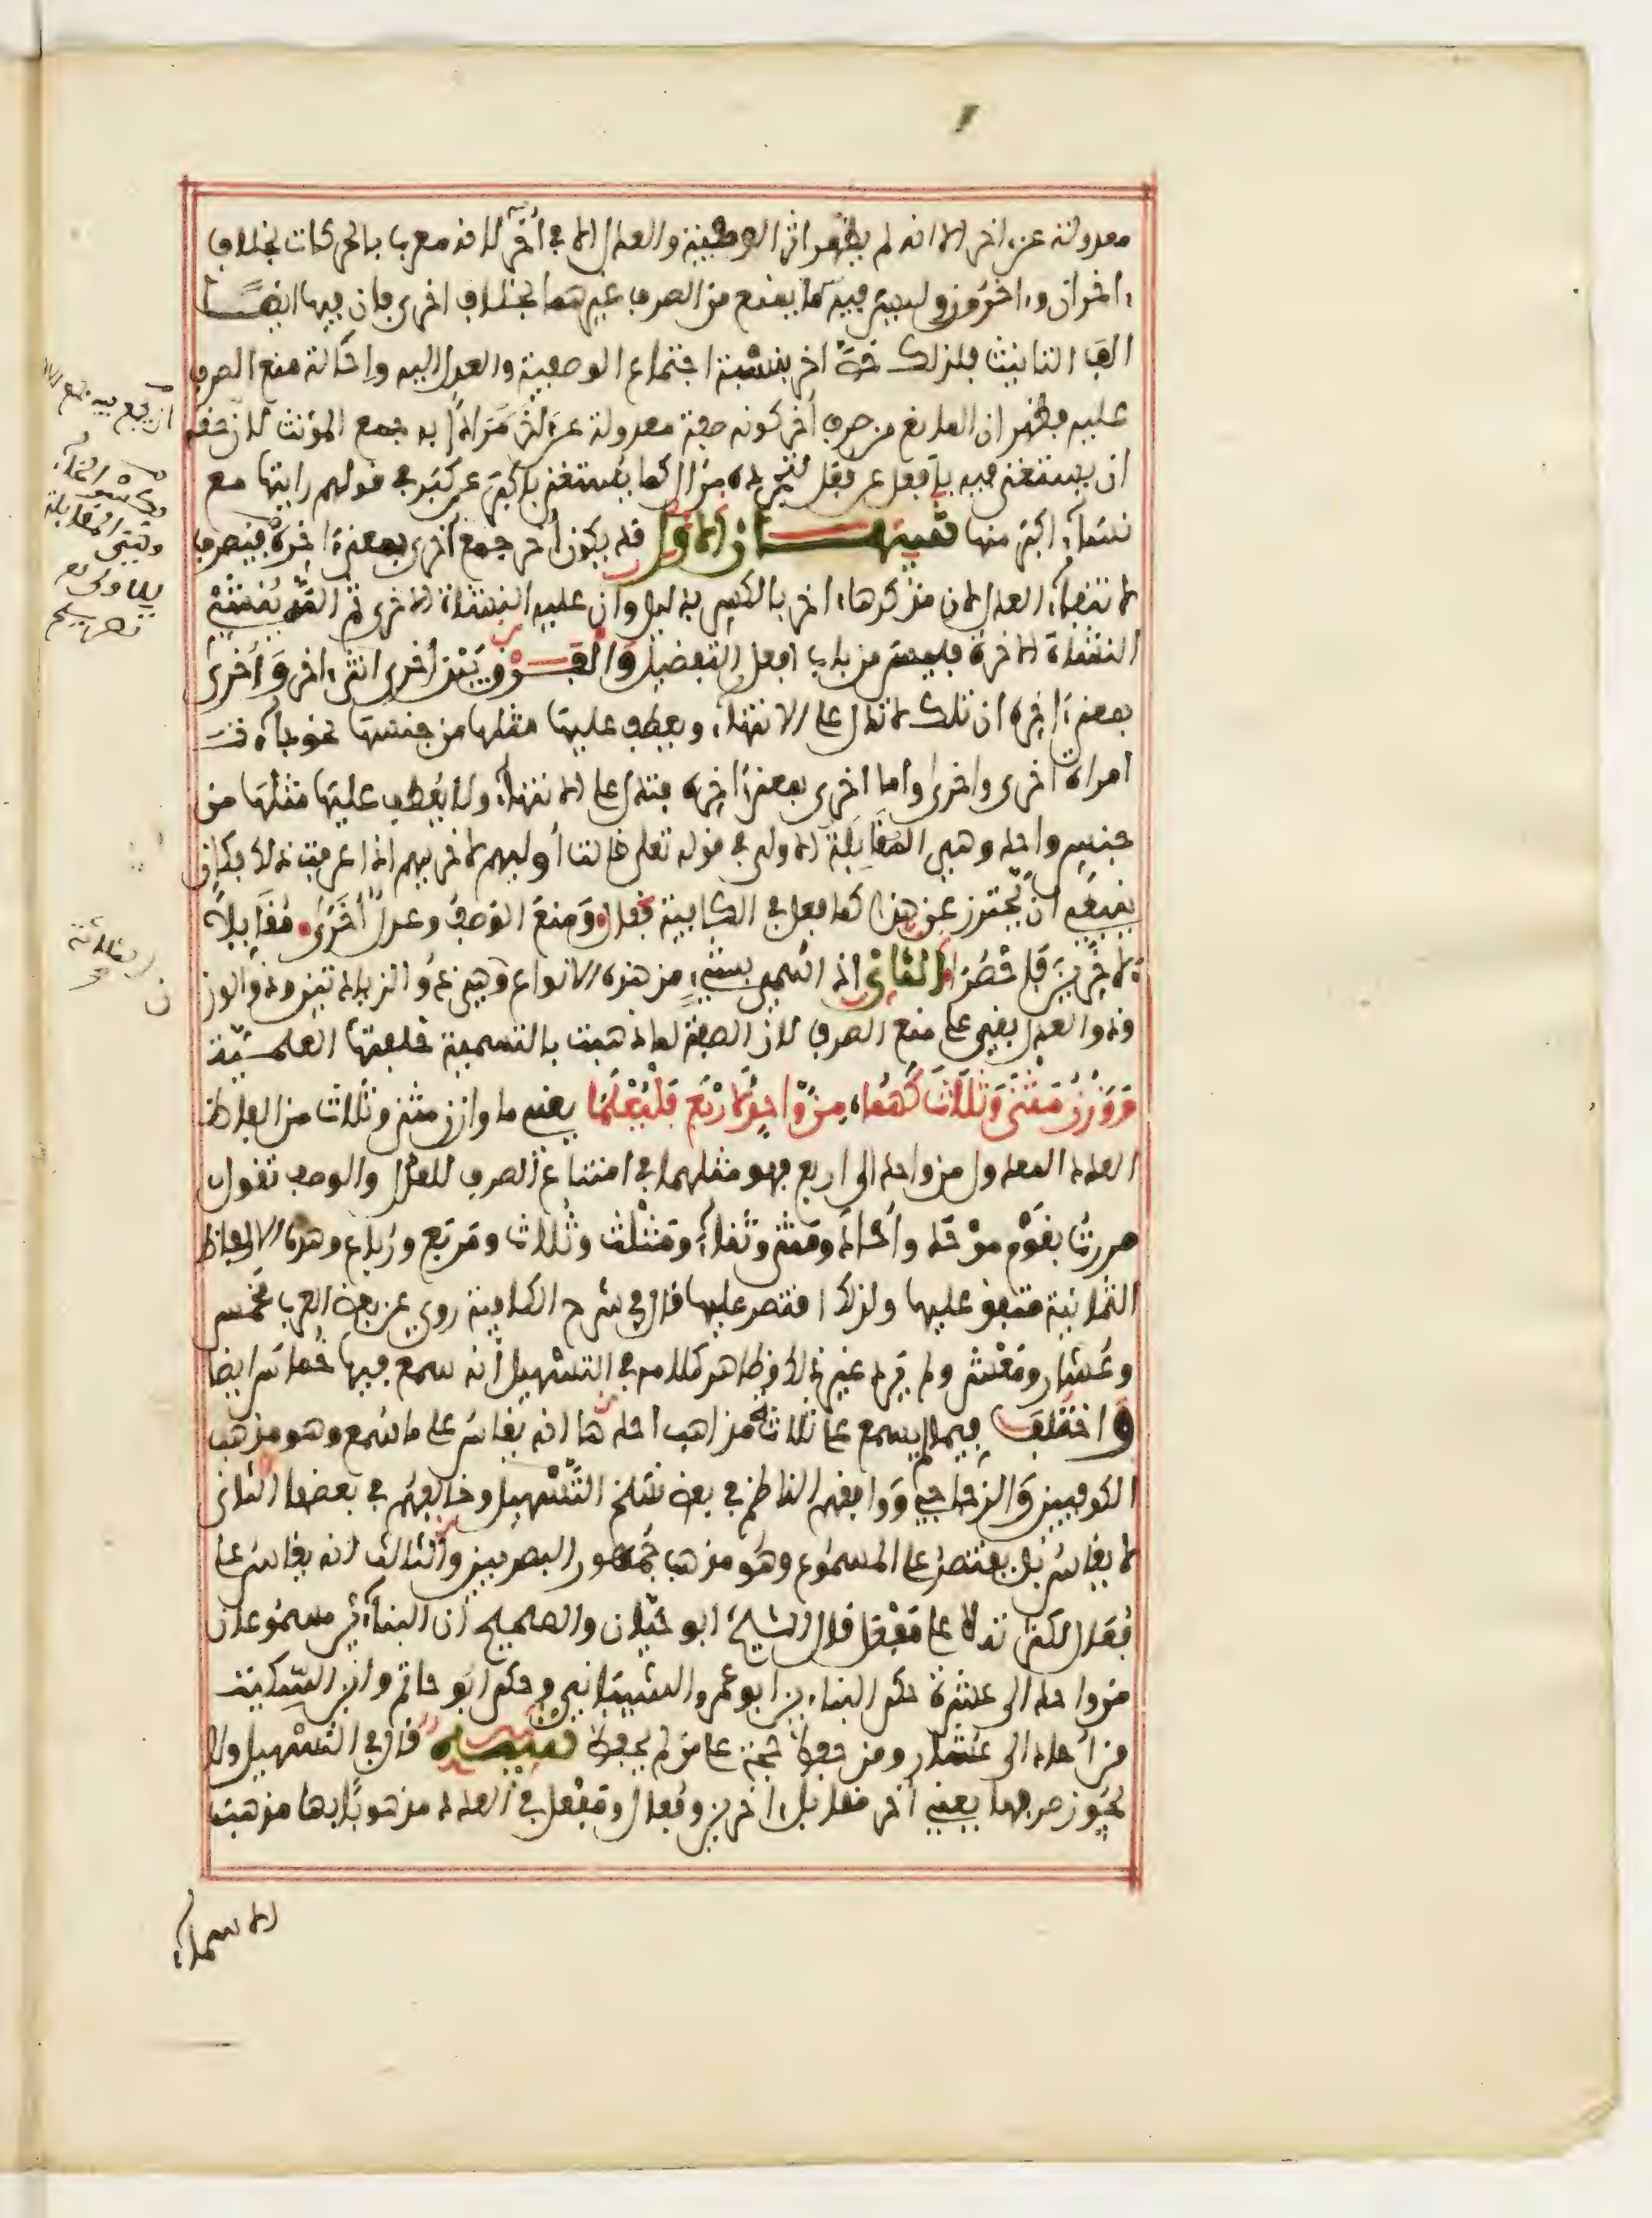 معدولة عن اخر الا انه لم يظهر اثر الوصفية والعدل الا في أخر لانه معرب بالحركات بخلاف
ءاخران وءاخرون وليس فيه ما يمنع من الصرف غيرهما بخلاف اخرى فان فيها ايضا
الف التانيث فلذلك خص اخر بنسبة اجتماع الوصفية والعدل اليه واحالة منع الصرف
عليه فظهر ان المانع من صرف أخر كونه صفة معدولة عن ءاخر مرادا به جمع المؤنث لان حقه
ان يستغنى فيه بأفعل عن فعل لتجرده من ال كما يستغنى باكبر عن كبر في قولهم رايتها مع
نساء اكبر منها تنبيهان الاول قد يكون أخر جمع أخرى بمعنى ءاخرة فيصرف
لانتفاء العدل لان مذكرها ءاخر بالكسر بدليل وان عليه النشأة الاخرى ثم الله ينشئ
النشأة الاخرة فليست من باب افعل التفضيل والفرق بين أخرى انثى ءاخر وأخرى
بمعنى ءاخرة ان تلك لا تدل على الانتهاء ويعطف عليها مثلها من جنسها نحو جاءت
امراة اخرى واخرى واما اخرى بمعنى ءاخرة فتدل على الانتهاء ولا يعطف عليها مثلها من
جنس واحد وهي المقابلة لاولى في قوله تعلى قالت أوليهم لاخريهم اذا عرفت ذلك فكان
ينبغي ان يحترز عن هذا كما فعل في الكافية فقال ومنع الوصف وعدل أخرا مقابلا
لاخرين فاحصرا الثاني اذا سمي بشيء من هذه الانواع وهي ذو الزيادتين وذو الوزن
وذو العدل بقي على منع الصرف لان الصفة لما ذهبت بالتسمية خلفتها العلمية
ووزن مثنى وثلاث كهما من واحد لاربع فليعلما يعني ما وازن مثنى وثلاث من الفاظ
العدد المعدول من واحد الى اربع فهو مثلهما في امتناع الصرف للعدل والوصف تقول
مررت بقوم موحد وأحاد ومثنى وثناء ومثلث وثلاث ومربع ورباع وهذه الالفاظ
الثمانية متفق عليها ولذلك اقتصر عليها قال في شرح الكافية روي عن بعض العرب مخمس
وعشار ومعشر ولم يرد غير ذلك وظاهر كلامه في التسهيل أنه سمع فيها خماس ايضا
واختلف فيما لم يسمع على ثلاثة مذاهب احدها انه يقاس على ما سمع وهو مذهب
الكوفيين والزجاج ووافقهم الناظم في بعض نسخ التسهيل وخالفهم في بعضها الثاني
لا يقاس بل يقتصر على المسموع وهو مذهب جمهور البصريين والثالث انه يقاس على
فعال لكثرته لا على مفعل قال الشيخ ابو حيان والصحيح ان البناءين مسموعان
من واحد الى عشرة حكى البناءين ابو عمرو الشيباني وحكى ابو حاتم وابن السكيت
من أحاد الى عشار ومن حفظ حجة على من لم يحفظ تنبيه قال في التسهيل ولا
يجوز صرفها يعني أخر مقابل ءاخرين وفعال ومفعل في العدد مذهوبا بها مذهب
الاسماء